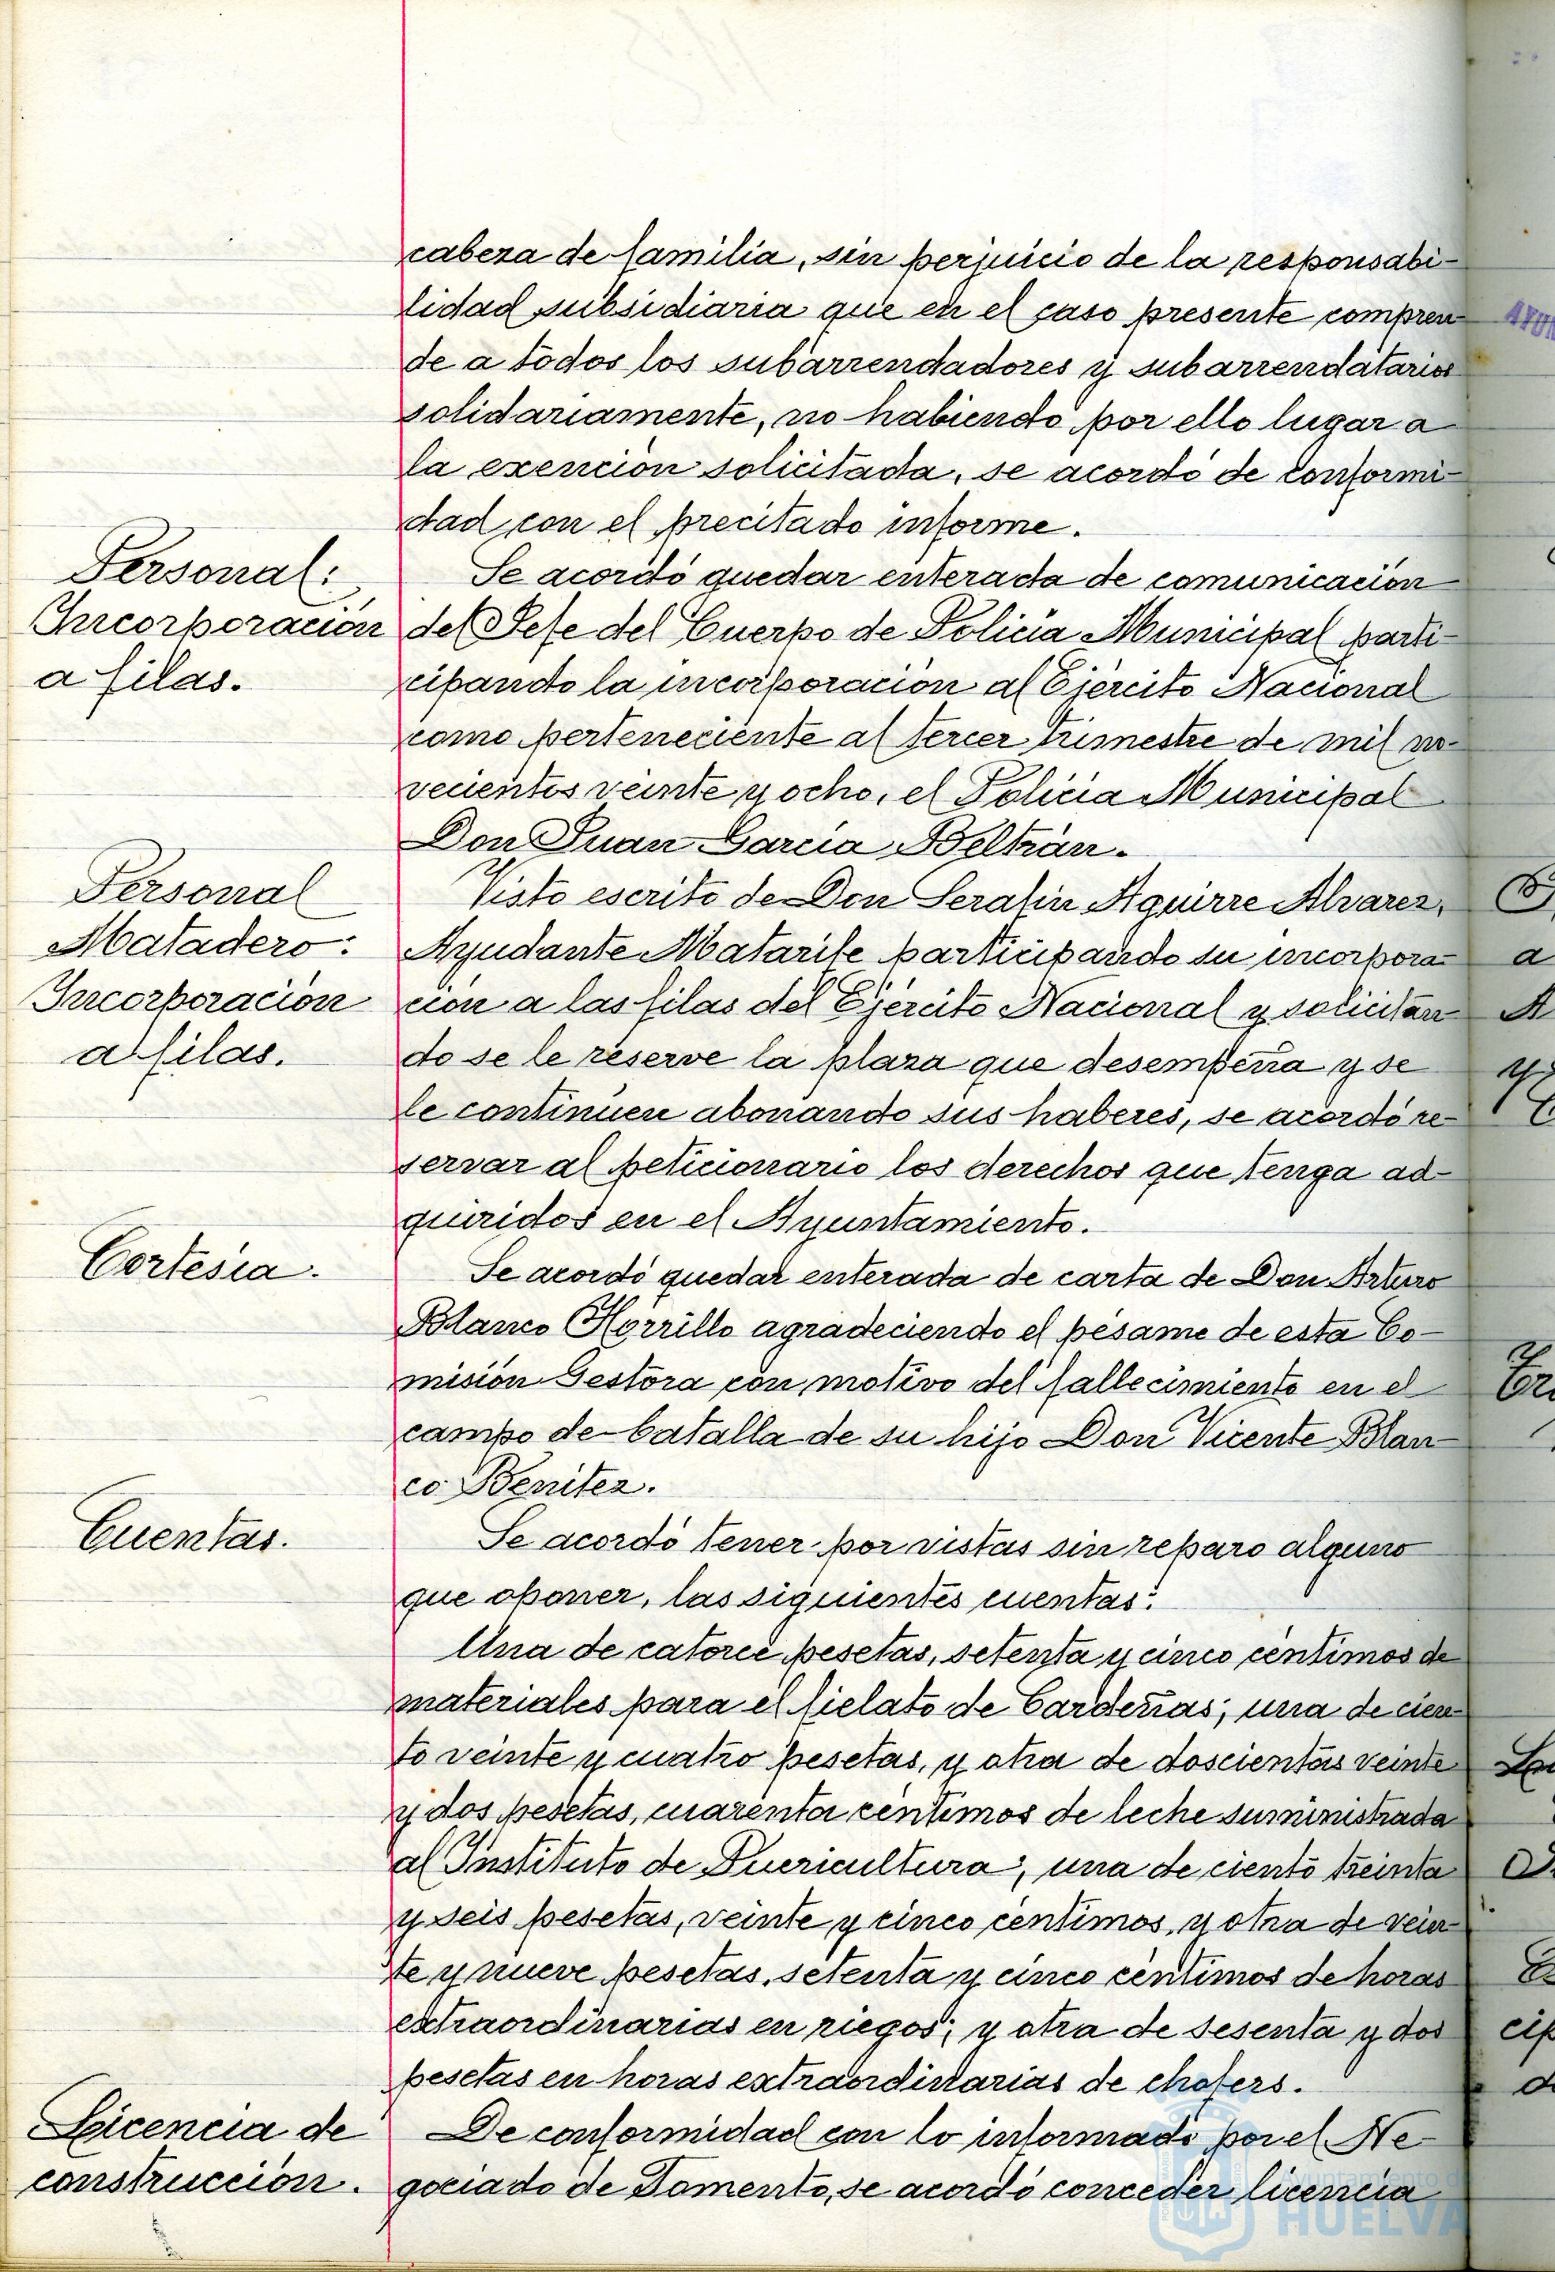 cabeza de familia, sin perjuicio de la responsabi-
lidad subsidiaria que en el caso presente compren
de a todos los subarrendadores y subarrendatarios
solidariamente, no habiendo por ello lugar a
la exención solicitada, se acordó de conformi-
dad con el precitado informe.
Personal:
Incorporación
a filas.
Se acordó quedar enterada de comunicación
del Jefe del Cuerpo de Policía Municipal parti-
cipando la incorporación al Ejército Nacional
como perteneciente al tercer trimestre de mil no-
vecientos veinte y ocho, el Policía Municipal
Don Juan García Beltrán.
Personal
Matadero:
Incorporación
a filas.
Visto escrito de Don Serafín Aguirre Alvarez,
Ayudante Matarife participando su incorpora-
ción a las filas del Ejército Nacional y solicitan
do se le reserve la plaza que desempeña y se
le continúen abonando sus haberes, se acordó re-
servar al peticionario los derechos que tenga ad-
quiridos en el Ayuntamiento.
Cortesía.
Se acordó quedar enterada de carta de Don Arturo
Blanco Horrillo agradeciendo el pésame de esta Co-
misión Gestora con motivo del fallecimiento en el
campo de batalla de su hijo Don Vicente Blan-
co Benitez.
Cuentas.
Se acordó tener por vistas sin reparo alguno
que oponer, las siguientes cuentas:
Una de catorce pesetas, setenta y cinco céntimos de
materiales para el fielato de Cardeñas; una de cien-
to veinte y cuatro pesetas, y otra de doscientas veinte
y dos pesetas, cuarenta céntimos de leche suministrada
al Instituto de Puericultura; una de ciento treinta
y seis pesetas, veinte y cinco céntimos, y otra de vein-
te y nueve pesetas, setenta y cinco céntimos de horas
extraordinarias en riegos; y otra de sesenta y dos
pesetas en horas extraordinarias de chofers.
Licencia de
construcción.
De conformidad con lo informado por el Ne-
gociado de Fomento, se acordó conceder licencia
Ayuntamiento de
HUELVA